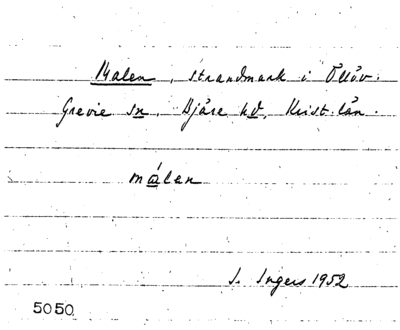 Malen, strandmark i Öllöv.
Grevie sn, Bjäre hd, Krist. län.
målen
I. Ingers 1952
5050